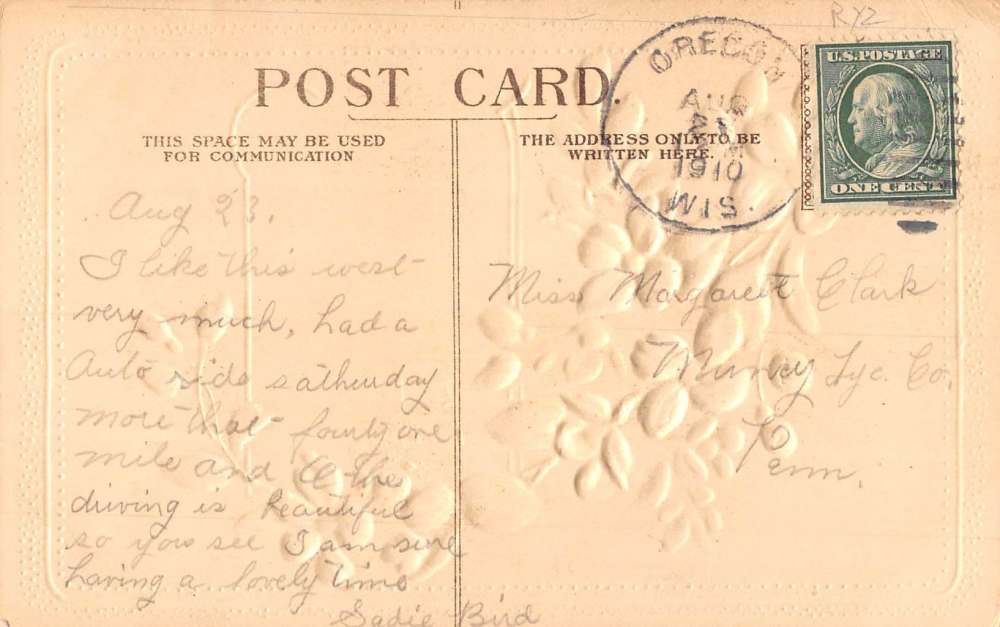 RYZ
POST CARD.
THIS SPACE MAY BE USED
FOR COMMUNICATION
THE ADDRESS ONLY TO BE
WRITTEN HERE.
OREGON
AUG
1910
WIS.
U.S. POSTAGE
ONE CENT
Aug 23.
I like this west
very much, had a
Auto ride sathurday
more that fourty one
mile and the
driving is Beautiful
so you see I am sure
having a lovely time
Sadie Bird
Miss Margaret Clark
Muncy Lyc. Co.
Penn.